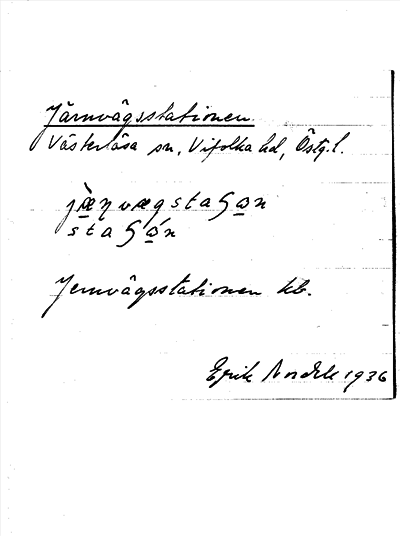 Järnvägsstationen
Västerlösa sn, Vifolka hd, Östg.l.
jæ̀ŋvægstaʃɷn
staʃɷ́n
Jernvägsstationen kb.
Erik 1936